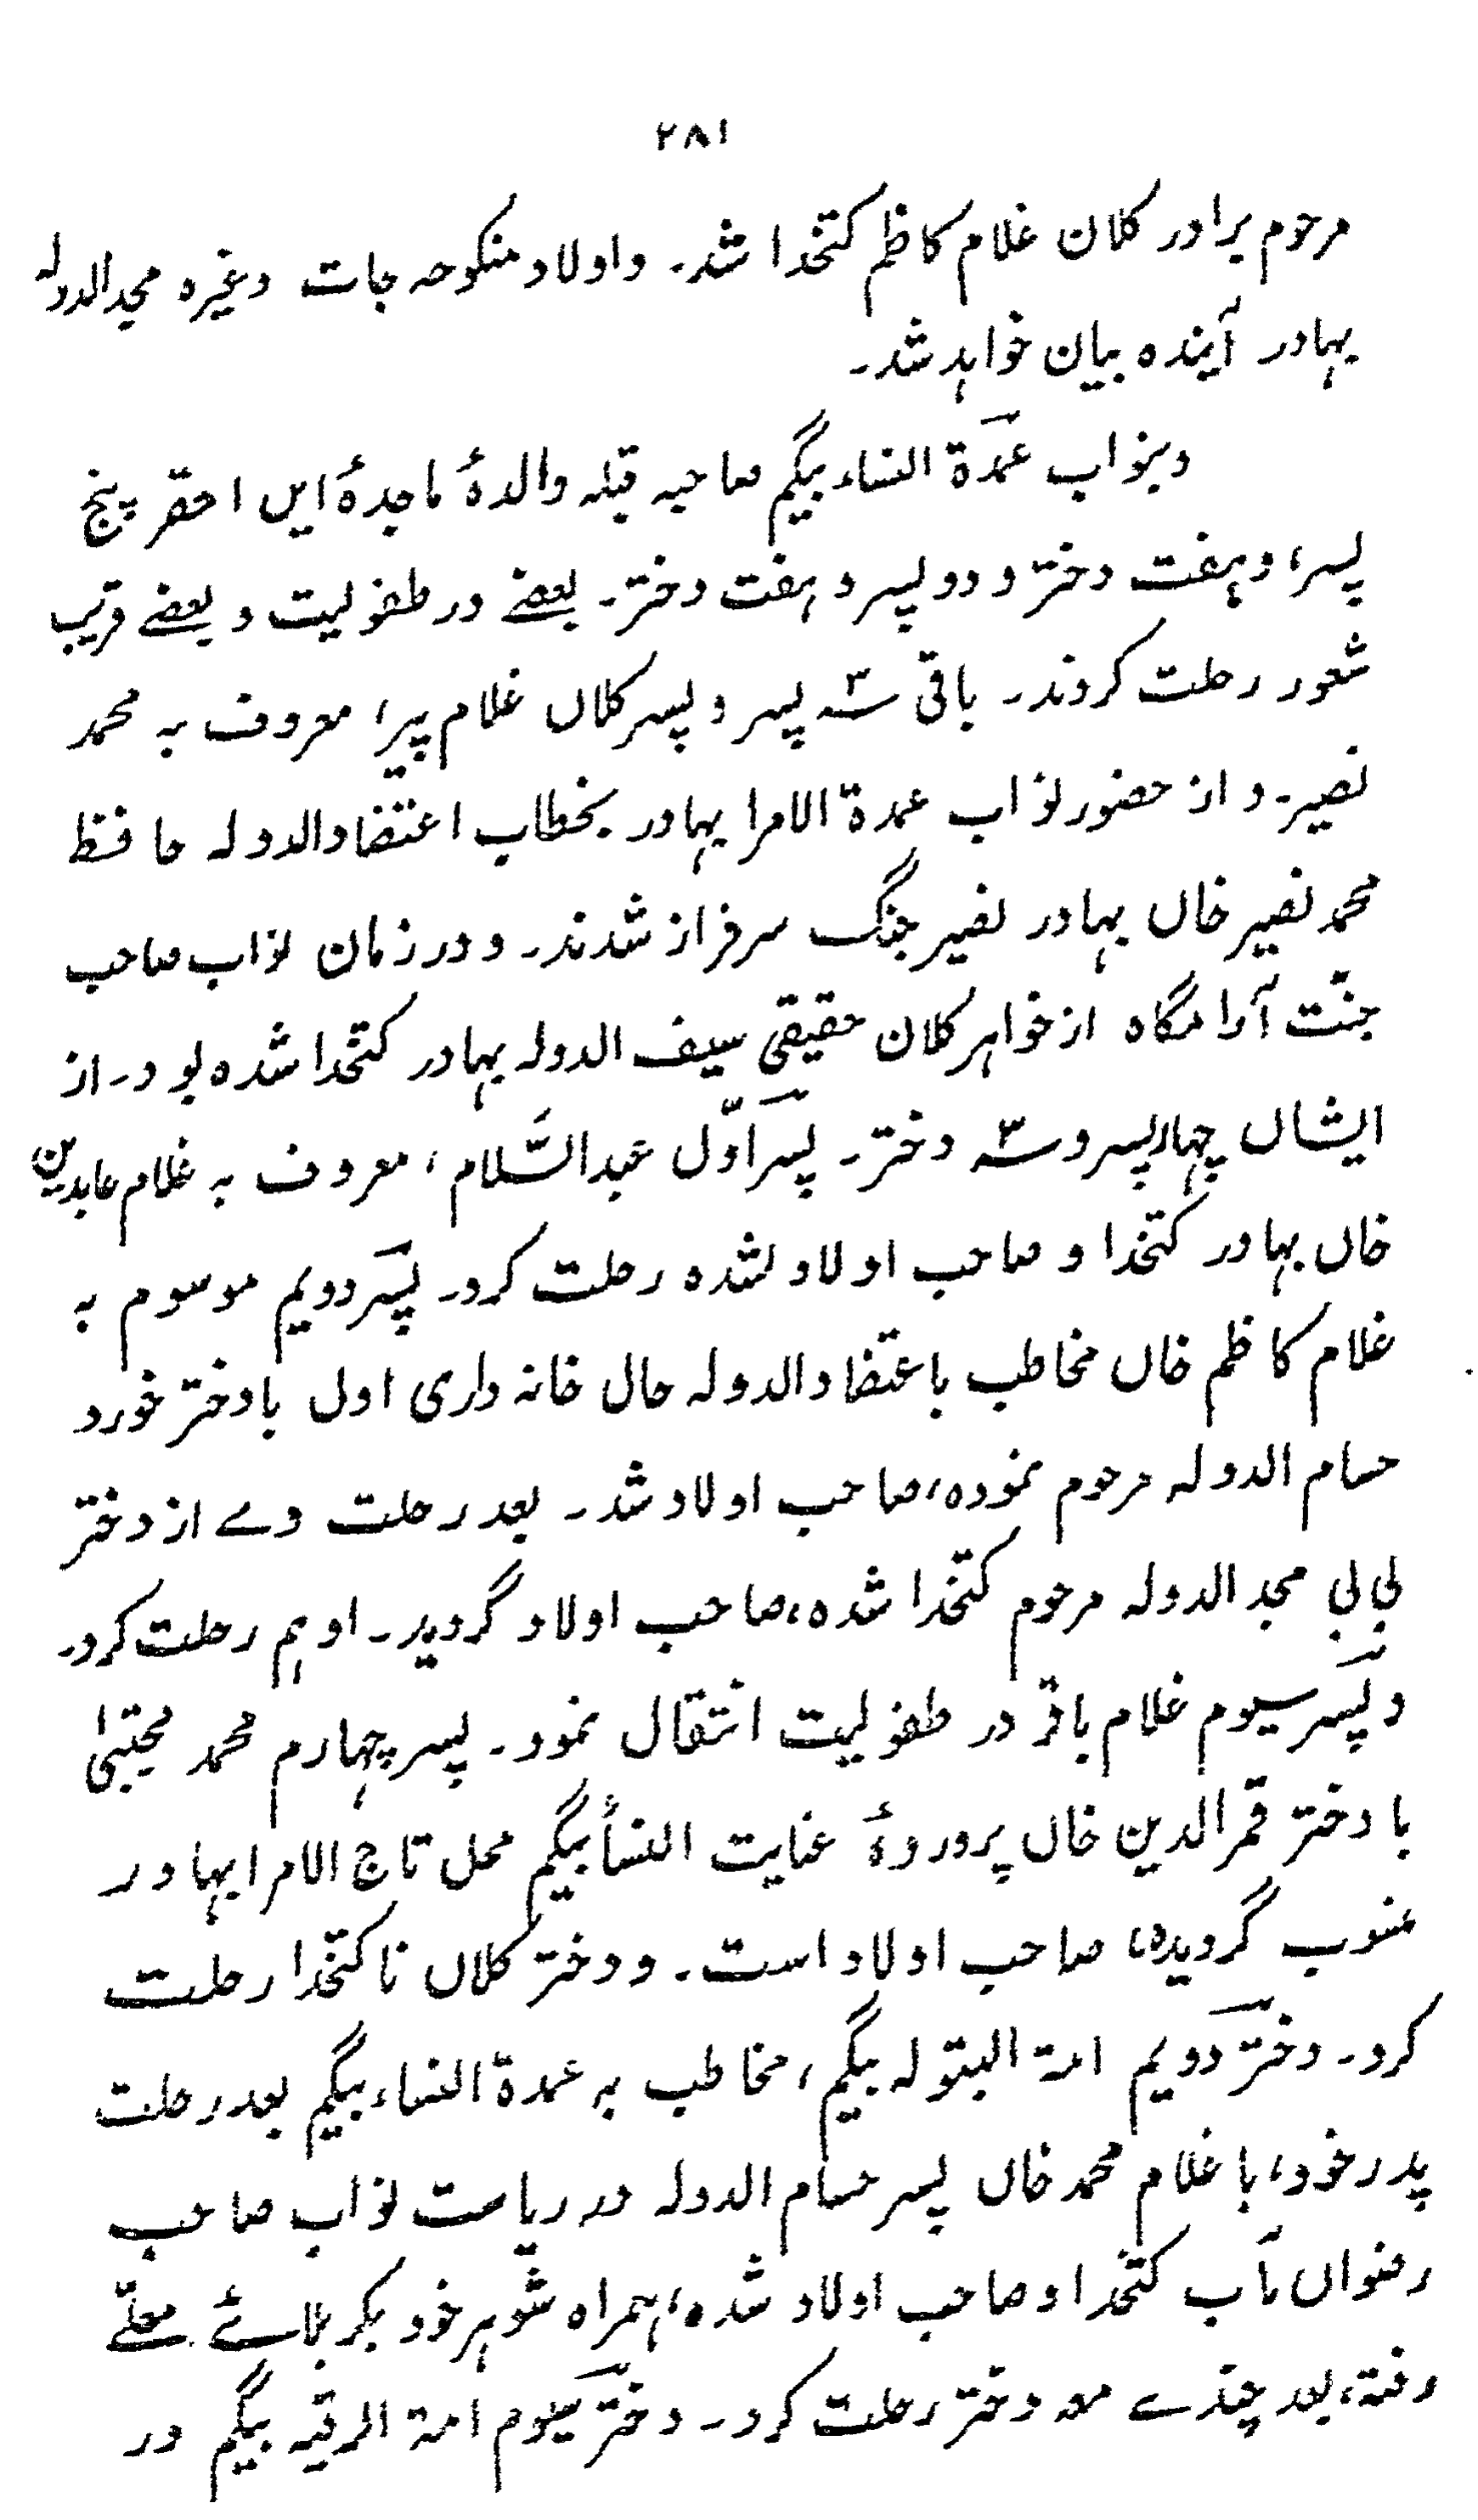 ۲۸۱
مرحوم برادر کلان غلام کاظم کتخدا شد۔ و اولاد منکوحہ جات وغیرہ مجدالدولہ
بہادر آیندہ بیان خواہد شد۔
وبنواب عمدۃ النساء بیگم صاحبہ قبلہ والدۂ ماجدۂ ایں احقر پنج
پسر، وہفت دختر و دو پسر و ہفت دختر۔ بعضے در طفولیت و بعضے قریب
شعور رحلت کردند۔ باقی سہ ۳ پسر و پسر کلاں غلام پیر، معروف بہ محمد
نصیر۔ و از حضور نواب عمدۃ الامرا بہادر بخطاب اعتضاد الدولہ حافظ
محمد نصیر خاں بہادر نصیر جنگ سرفراز شدند۔ و در زمان نواب صاحب
جنّت آرامگاہ از خواہر کلان حقیقی سیف الدولہ بہادر کتخدا شدہ بود۔ از
ایشاں چہار پسر و سہ ۳ دختر۔ پسر اوّل عبد السَّلام، معروف بہ غلام عابدین
خاں بہادر کتخدا و صاحب اولاد نشدہ رحلت کرد۔ پسر دویم موسوم بہ
غلام کاظم خاں مخاطب باعتضاد الدولہ حال خانہ داری اول با دختر خورد
حسام الدولہ مرحوم نمودہ، صاحب اولاد شد۔ بعد رحلت وے از دختر
بی بی مجد الدولہ مرحوم کتخدا شدہ، صاحب اولاد گردید۔ او ہم رحلت کرد۔
و پسر سیوم غلام باقر در طفولیت انتقال نمود۔ پسر چہارم محمد مجتبیٰ
با دختر قمر الدین خاں پروردۂ عنایت النسأ بیگم محل تاج الامرا بہادر
منسوب گردیدہ، صاحب اولاد است۔ و دختر کلاں ناکتخدا رحلت
کرد۔ دختر دویم امۃ البتولہ بیگم، مخاطب بہ عمدۃ النساء بیگم بعد رحلت
پدر خود، با غلام محمد خاں پسر حسام الدولہ در ریاست نواب صاحب
رضواں مآب کتخدا و صاحب اولاد شدہ، ہمراہ شوہر خود بکربلائے معلّے
رفتہ، بعد چندے معہ دختر رحلت کرد۔ دختر سیوم امۃ الرقیہ بیگم در